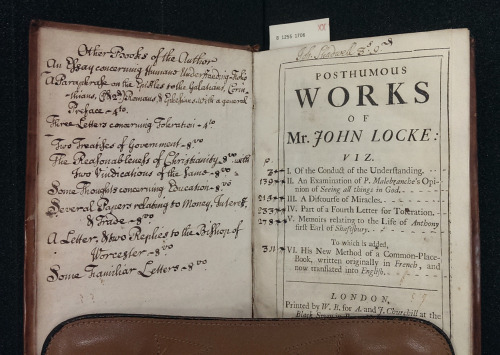 Other Books of the Author
An Essay concerning Humane Understanding - Folio
A Paraphrase on the Epistles to the Galatians, Corin
thians, Romans & Ephesians. with a general
Preface - 4to
Three Letters concerning Toleration - 4to
Two Treatises of Government - 8vo
The Reasonableness of Christianity 8vo with
two Vindications of the Same - 8vo
Some Thoughts concerning Education - 8vo
Several Papers relating to Money, Interest,
& Trade - 8vo
A Letter, & two Replies to the Bishop of
Worcester - 8vo
Some Familiar Letters - 8vo
POSTHUMOUS
WORKS
OF
Mr. JOHN LOCKE:
VIZ.
I. Of the Conduct of the Understanding.
II. An Examination of P. Malebranche's Opi-
nion of Seeing all things in God.
III. A Discourse of Miracles.
IV. Part of a Fourth Letter for Toleration.
V. Memoirs relating to the Life of Anthony
first Earl of Shaftsbury.
To which is added,
VI. His New Method of a Common-Place-
Book, written originally in French, and
now translated into English.
LONDON,
Printed by W. B. for A. and J. Churchill at the
Black Swan in